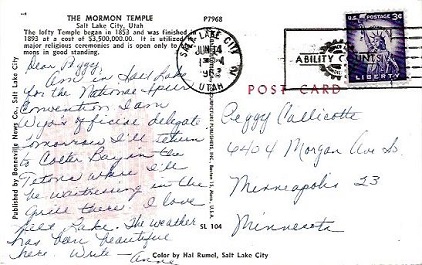 THE MORMON TEMPLE
Salt Lake City, Utah
The lofty Temple began in 1853 and was finished in
1893 at a cost of $3,500,000.00. It is utilized
major religious ceremonies and is open only to
mons in good standing.
P7968
SALT LAKE CITY
JUN 14
UTAH
ABILITY COUNTS
U.S. POSTAGE 3¢
LIBERTY
POST CARD
Dear Peggy,
Am in Salt Lake
for the National
Convention I am
official
Tomorrow I'll return
to Colter Bay in the
Tetons where I'll
be waitressing in the
Grill there. I love
Lake. The weather
has been beautiful
here. Write -
Anne
Peggy Callicotte
6404 Morgan Ave So.
Minneapolis 23
Minnesota
Published by Bonneville News Co., Salt Lake City
SL 104
Color by Hal Rumel, Salt Lake City